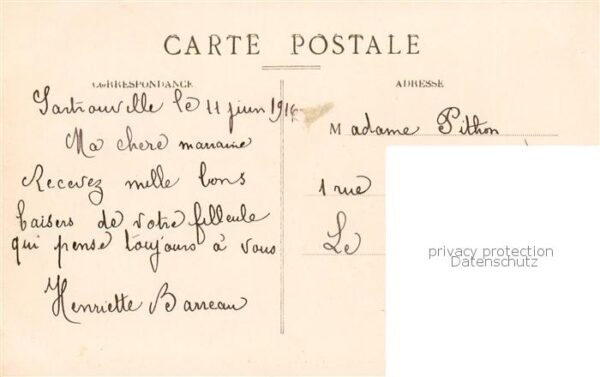 CARTE POSTALE
CORRESPONDANCE
ADRESSE
Sartrouville le 11 juin 1916
Ma chere marraine
Recevez mille bons
baisers de votre filleule
qui pense toujours à vous
Henriette Barreau
Madame Pithon
1 rue
Le
privacy protection
Datenschutz